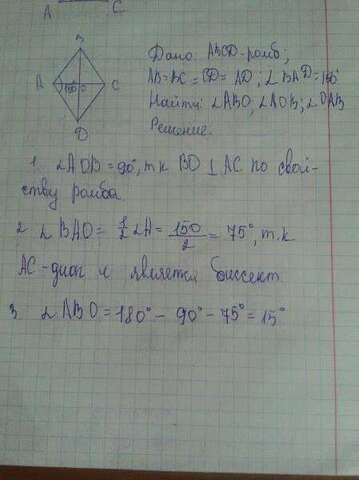 A C
B
A 150 O C
D
Дано: ABCD-ромб;
AB=BC=CD=AD; ∠BAD=150°
Найти: ∠ABO; ∠AOB; ∠OAB
Решение.
1. ∠AOB=90°, т.к BD⊥AC по свой-
ству ромба.
2 ∠BAO=1/2∠A=150/2=75°, т.к
AC-диаг и является биссект
3 ∠ABO=180°-90°-75°=15°